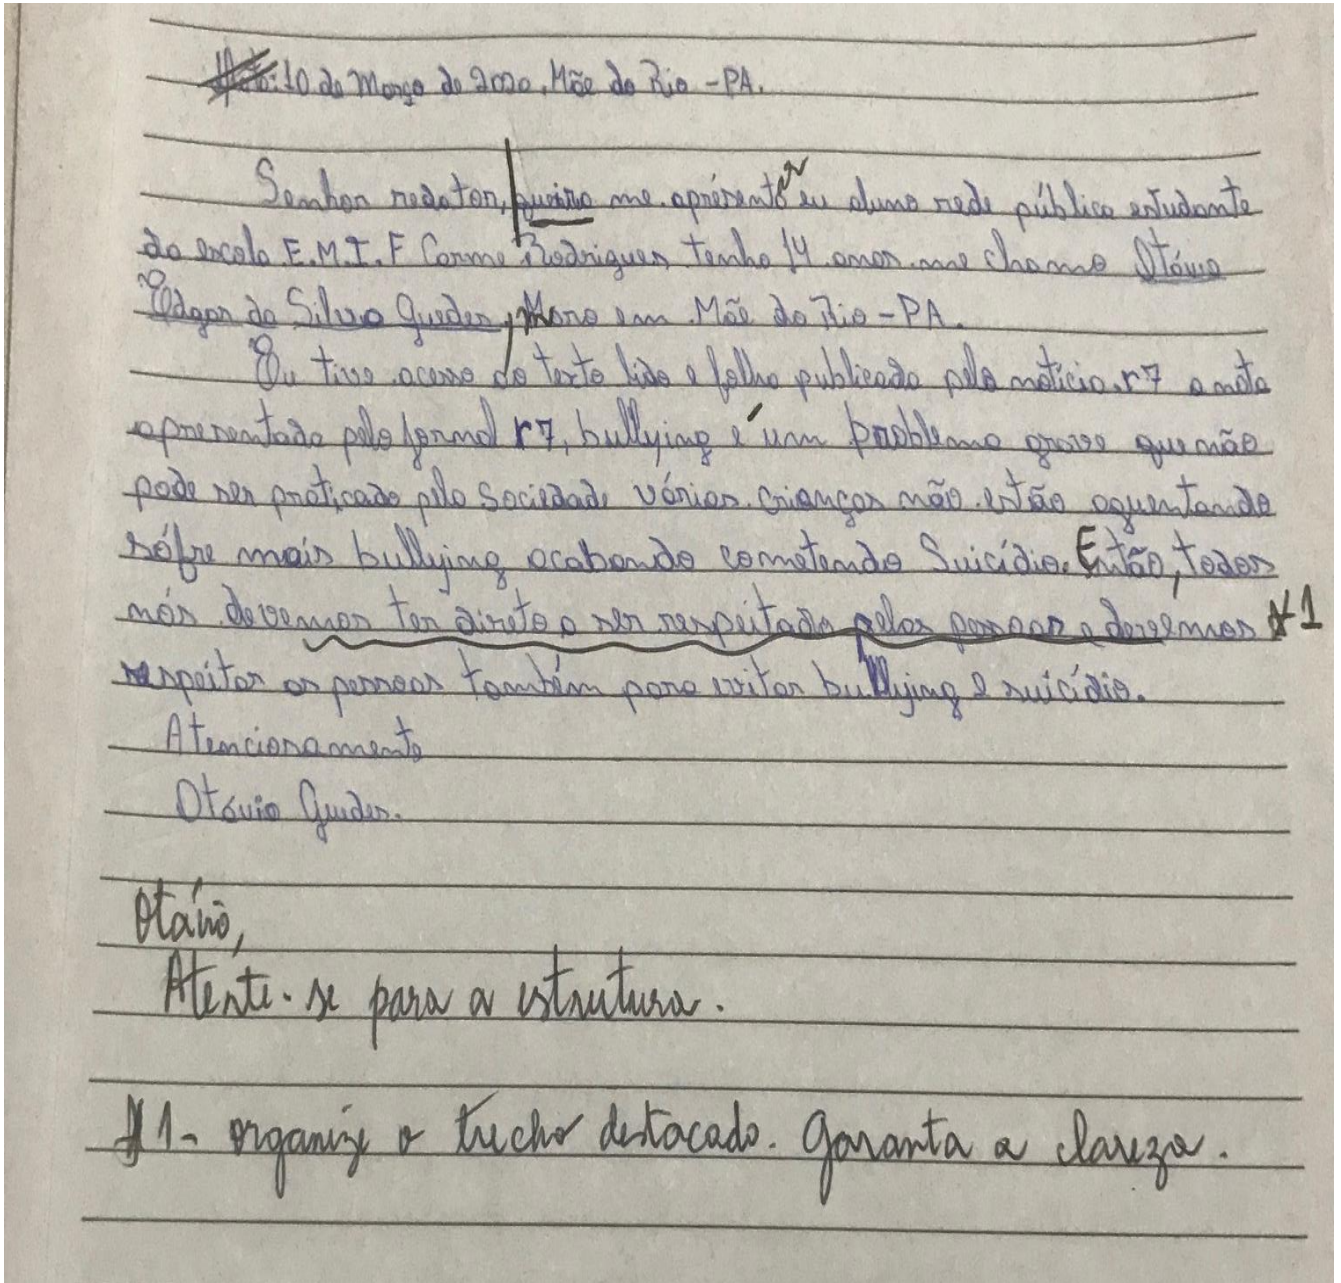 10 de Março de 2020, Mãe do Rio - PA.
Senhor redator, queiro me apresentar eu aluno rede pública estudante
da escola E.M.I.F Carme Rodrigues tenho 14 anos me chamo Otávio
Edgar da Silva Guedes, Moro em Mãe do Rio - PA.
Eu tive acesso do texto lido e folha publicada pela notícia r7 a nota
apresentada pelo jornal r7, bullying é um problema grave que não
pode ser praticado pela Sociedade várias crianças não estão aguentando
sófre mais bullying acabando cometendo Suicídio. Então, todos
nós devemos ter direto a ser respeitado pelas pessoas e devemos *1
respeitar as pessoas também para evitar bullying e suicídio.
Atencionamente
Otávio Guedes.
Otávio,
Atente-se para a estrutura.
*1- organize o trecho destacado. Garanta a clareza.